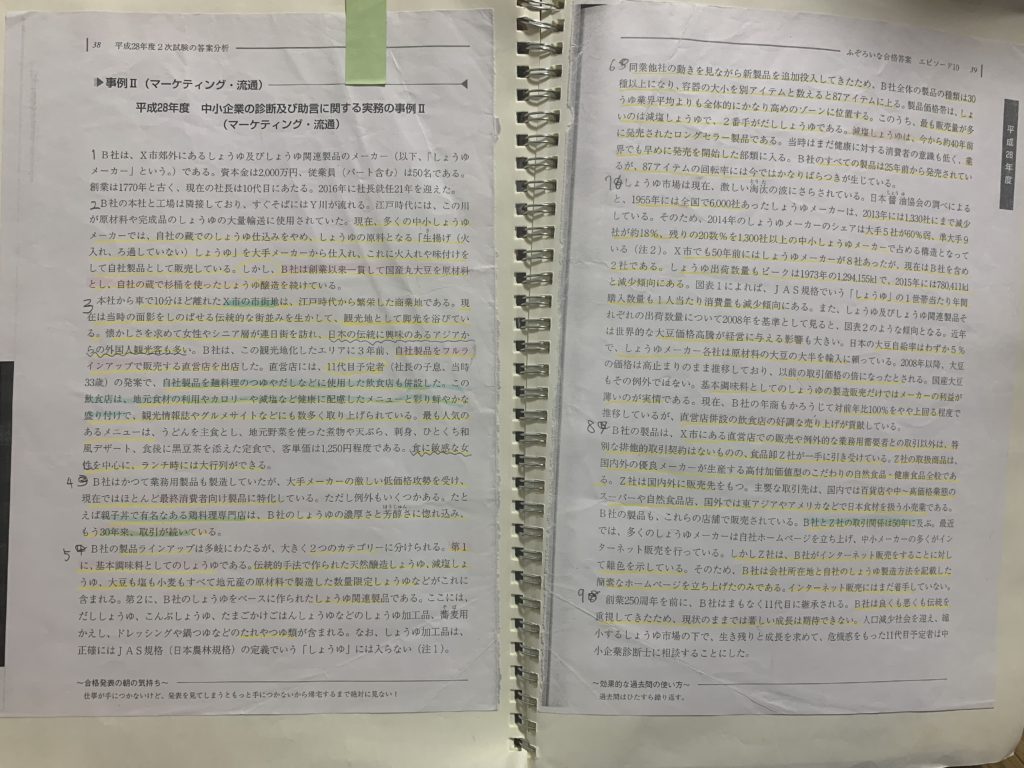 38　平成28年度2次試験の答案分析
▶事例Ⅱ（マーケティング・流通）
平成28年度　中小企業の診断及び助言に関する実務の事例Ⅱ
（マーケティング・流通）
1 B社は、X市郊外にあるしょうゆ及びしょうゆ関連製品のメーカー（以下、「しょうゆ
メーカー」という。）である。資本金は2,000万円、従業員（パート含む）は50名である。
創業は1770年と古く、現在の社長は10代目にあたる。2016年に社長就任21年を迎えた。
2 B社の本社と工場は隣接しており、すぐそばにはY川が流れる。江戸時代には、この川
が原材料や完成品のしょうゆの大量輸送に使用されていた。現在、多くの中小しょうゆ
メーカーでは、自社の蔵でのしょうゆ仕込みをやめ、しょうゆの原料となる「生揚げ（火
入れ、ろ過していない）しょうゆ」を大手メーカーから仕入れ、これに火入れや味付けを
して自社製品として販売している。しかし、B社は創業以来一貫して国産丸大豆を原材料
とし、自社の蔵で杉桶を使ったしょうゆ醸造を続けている。
3 本社から車で10分ほど離れたX市の市街地は、江戸時代から繁栄した商業地である。現
在は当時の面影をしのばせる伝統的な街並みを生かして、観光地として脚光を浴びてい
る。懐かしさを求めて女性やシニア層が連日街を訪れ、日本の伝統に興味のあるアジアか
らの外国人観光客も多い。B社は、この観光地化したエリアに3年前、自社製品をフルラ
インアップで販売する直営店を出店した。直営店には、11代目予定者（社長の子息、当時
33歳）の発案で、自社製品を麺料理のつゆやだしなどに使用した飲食店も併設した。この
飲食店は、地元食材の利用やカロリーや減塩など健康に配慮したメニューと彩り鮮やかな
盛り付けで、観光情報誌やグルメサイトなどにも数多く取り上げられている。最も人気の
あるメニューは、うどんを主食とし、地元野菜を使った煮物や天ぷら、刺身、ひとくち和
風デザート、食後に黒豆茶を添えた定食で、客単価は1,250円程度である。食に敏感な女
性を中心に、ランチ時には大行列ができる。
4 B社はかつて業務用製品も製造していたが、大手メーカーの激しい低価格攻勢を受け、
現在ではほとんど最終消費者向け製品に特化している。ただし例外もいくつかある。たと
えば親子丼で有名なある鶏料理専門店は、B社のしょうゆの濃厚さと芳醇さに惚れ込み、
もう30年来、取引が続いている。
5 B社の製品ラインアップは多岐にわたるが、大きく2つのカテゴリーに分けられる。第1
に、基本調味料としてのしょうゆである。伝統的手法で作られた天然醸造しょうゆ、減塩しょ
うゆ、大豆も塩も小麦もすべて地元産の原材料で製造した数量限定しょうゆなどがこれに
含まれる。第2に、B社のしょうゆをベースに作られたしょうゆ関連製品である。ここには、
だししょうゆ、こんぶしょうゆ、たまごかけごはんしょうゆなどのしょうゆ加工品、蕎麦用
かえし、ドレッシングや鍋つゆなどのたれやつゆ類が含まれる。なお、しょうゆ加工品は、
正確にはJAS規格（日本農林規格）の定義でいう「しょうゆ」には入らない（注1）。
〜合格発表の朝の気持ち〜
仕事が手につかないけど、発表を見てしまうともっと手につかないから帰宅するまで絶対に見ない！
ふぞろいな合格答案　エピソード10　39
平成28年度
6 同業他社の動きを見ながら新製品を追加投入してきたため、B社全体の製品の種類は30
種以上になり、容器の大小を別アイテムと数えると87アイテムに上る。製品価格帯は、しょ
うゆ業界平均よりも全体的にかなり高めのゾーンに位置する。このうち、最も販売量が多
いのは減塩しょうゆで、2番手がだししょうゆである。減塩しょうゆは、今から約40年前
に発売されたロングセラー製品である。当時はまだ健康に対する消費者の意識も低く、業
界でも早めに発売を開始した部類に入る。B社のすべての製品は25年前から発売されている
が、87アイテムの回転率には今ではかなりばらつきが生じている。
7 しょうゆ市場は現在、激しい淘汰の波にさらされている。日本醤油協会の調べによる
と、1955年には全国で6,000社あったしょうゆメーカーは、2013年には1,330社にまで減少
している。そのため、2014年のしょうゆメーカーのシェアは大手5社が60％弱、準大手9
社が約18％、残りの20数％を1,300社以上の中小しょうゆメーカーで占める構造となって
いる（注2）。X市でも50年前にはしょうゆメーカーが8社あったが、現在はB社を含め
2社である。しょうゆ出荷数量もピークは1973年の1,294,155klで、2015年には780,411kl
と減少傾向にある。図表1によれば、JAS規格でいう「しょうゆ」の1世帯当たり年間
購入数量も1人当たり消費量も減少傾向にある。また、しょうゆ及びしょうゆ関連製品そ
れぞれの出荷数量について2008年を基準として見ると、図表2のような傾向となる。近年
は世界的な大豆価格高騰が経営に与える影響も大きい。日本の大豆自給率はわずか5％
で、しょうゆメーカー各社は原材料の大豆の大半を輸入に頼っている。2008年以降、大豆
の価格は高止まりのまま推移しており、以前の取引価格の倍になったとされる。国産大豆
もその例外ではない。基本調味料としてのしょうゆの製造販売だけではメーカーの利益が
薄いのが実情である。現在、B社の年商もかろうじて対前年比100％をやや上回る程度で
推移しているが、直営店併設の飲食店の好調な売り上げが貢献している。
8 B社の製品は、X市にある直営店での販売や例外的な業務用需要者との取引以外は、特
別な排他的取引契約はないものの、食品卸Z社が一手に引き受けている。Z社の取扱商品は、
国内外の優良メーカーが生産する高付加価値型のこだわりの自然食品・健康食品全般であ
る。Z社は国内外に販売先をもつ。主要な取引先は、国内では百貨店や中〜高価格業態の
スーパーや自然食品店、国外では東アジアやアメリカなどで日本食材を扱う小売業である。
B社の製品も、これらの店舗で販売されている。B社とZ社の取引関係は50年に及ぶ。最近
では、多くのしょうゆメーカーは自社ホームページを立ち上げ、中小メーカーの多くがイン
ターネット販売を行っている。しかしZ社は、B社がインターネット販売をすることに対し
て難色を示している。そのため、B社は会社所在地と自社のしょうゆ製造方法を記載した
簡素なホームページを立ち上げたのみである。インターネット販売にはまだ着手していない。
9 創業250周年を前に、B社はまもなく11代目に継承される。B社は良くも悪くも伝統を
重視してきたため、現状のままでは著しい成長は期待できない。人口減少社会を迎え、縮
小するしょうゆ市場の下で、生き残りと成長を求めて、危機感をもった11代目予定者は中
小企業診断士に相談することにした。
〜効果的な過去問の使い方〜
過去問はひたすら繰り返す。